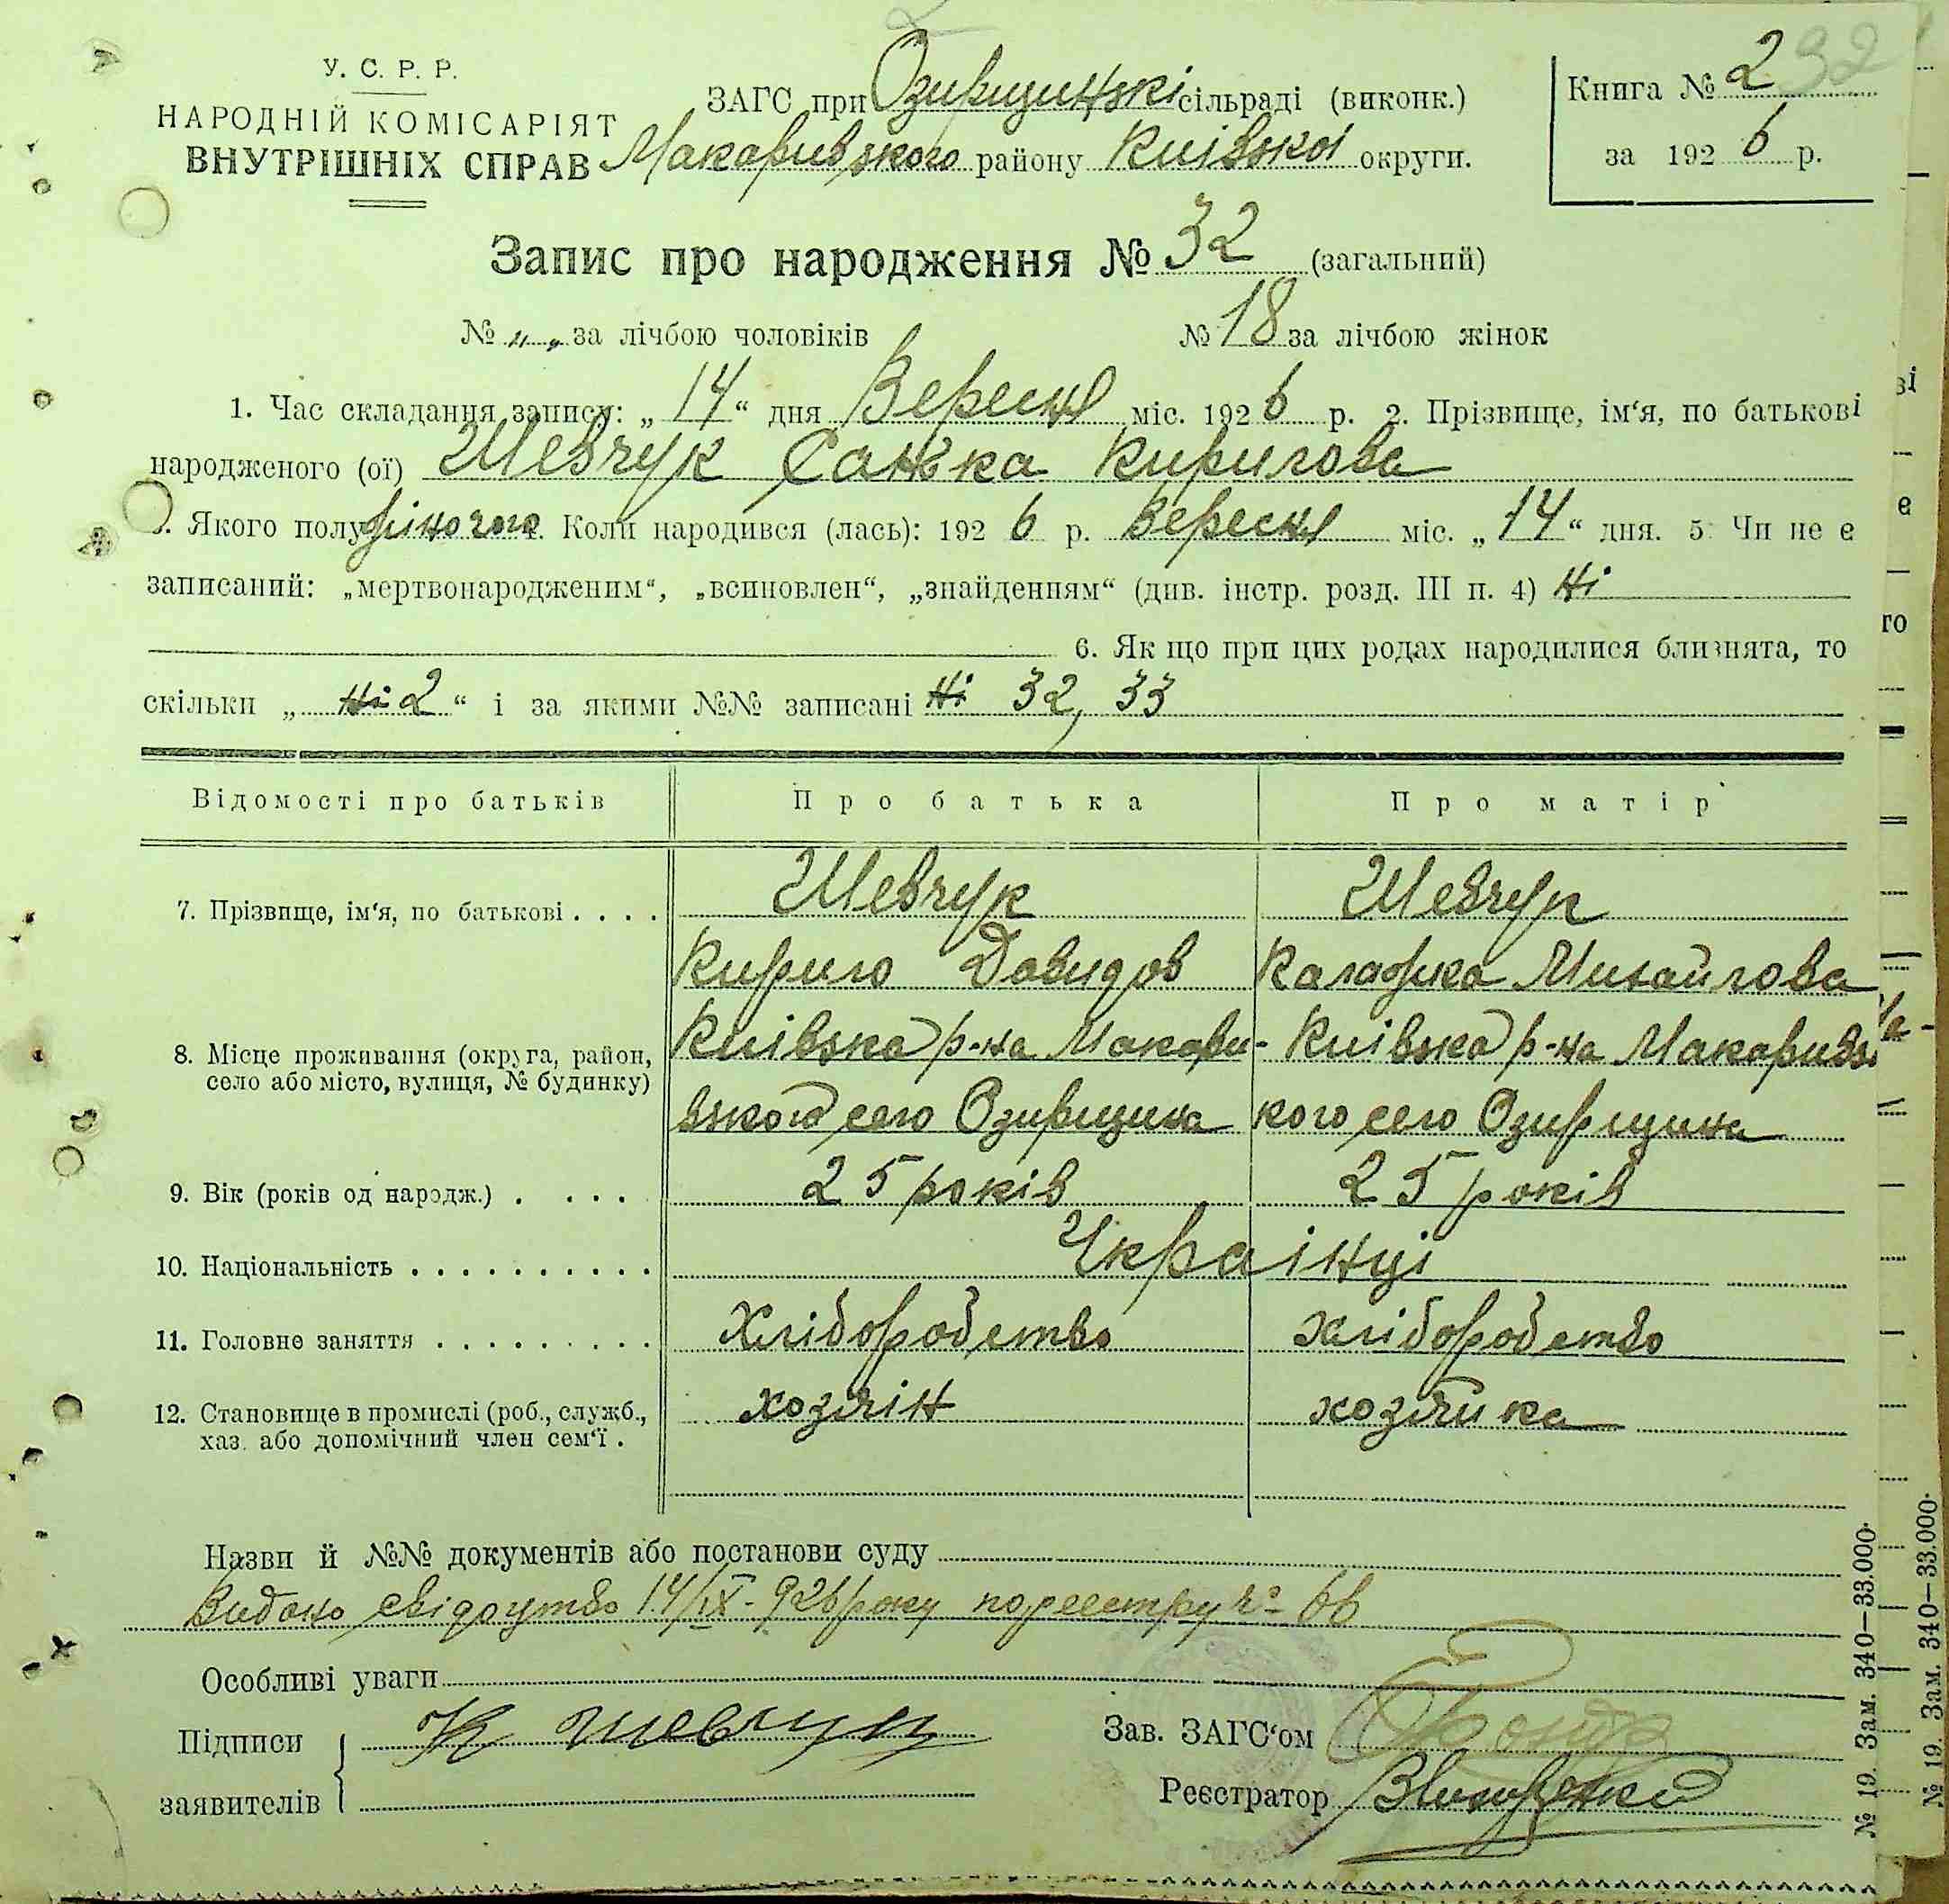 У. С. Р. Р.
НАРОДНІЙ КОМІСАРІЯТ
ВНУТРІШНІХ СПРАВ
ЗАГС при Озирщинські сільраді (виконк.)
Макаривського району Київської округи.
Книга № 2 92
за 1926 р.
Запис про народження № 32 (загальний)
№ „ „ за лічбою чоловіків № 18 за лічбою жінок
1. Час складання запису: „14“ дня Вересня міс. 1926 р. 2. Прізвище, ім‘я, по батькові
народженого (ої) Шевчук Санька Кирилова
3. Якого полу жіночого 4. Коли народився (лась): 1926 р. Вересня міс. „14“ дня. 5. Чи не є
записаний: „мертвонародженим“, „всиновлен“, „знайденням“ (див. інстр. розд. III п. 4) Ні
6. Як що при цих родах народилися близнята, то
скільки „ ні 2 “ і за якими №№ записані ні 32, 33
Відомості про батьків Про батька Про матір
7. Прізвище, ім‘я, по батькові . . . . Шевчук Шевчук
Кирило Давидов Михайлова
8. Місце проживання (округа, район, Київська р-на Макари- Київська р-на Макаривсь
село або місто, вулиця, № будинку)
вского село Озирщина кого село Озирщина
9. Вік (років од народж.) . . . . 25 років 25 років
10. Національність . . . . . . . . . . Українці
11. Головне заняття . . . . . . . . . Хліборобство хліборобство
12. Становище в промислі (роб., служб., хозяін хозяйка
хаз. або допомічний член сем‘ї .
Назви й №№ документів або постанови суду
Видано свідоцтво 14/IX-926 року по реестру № 66
Особливі уваги
Підписи К Шевчук
заявителів
Зав. ЗАГС‘ом
Реєстратор
№ 19. Зам. 340—33.000.
№ 19. Зам. 340—33.000.